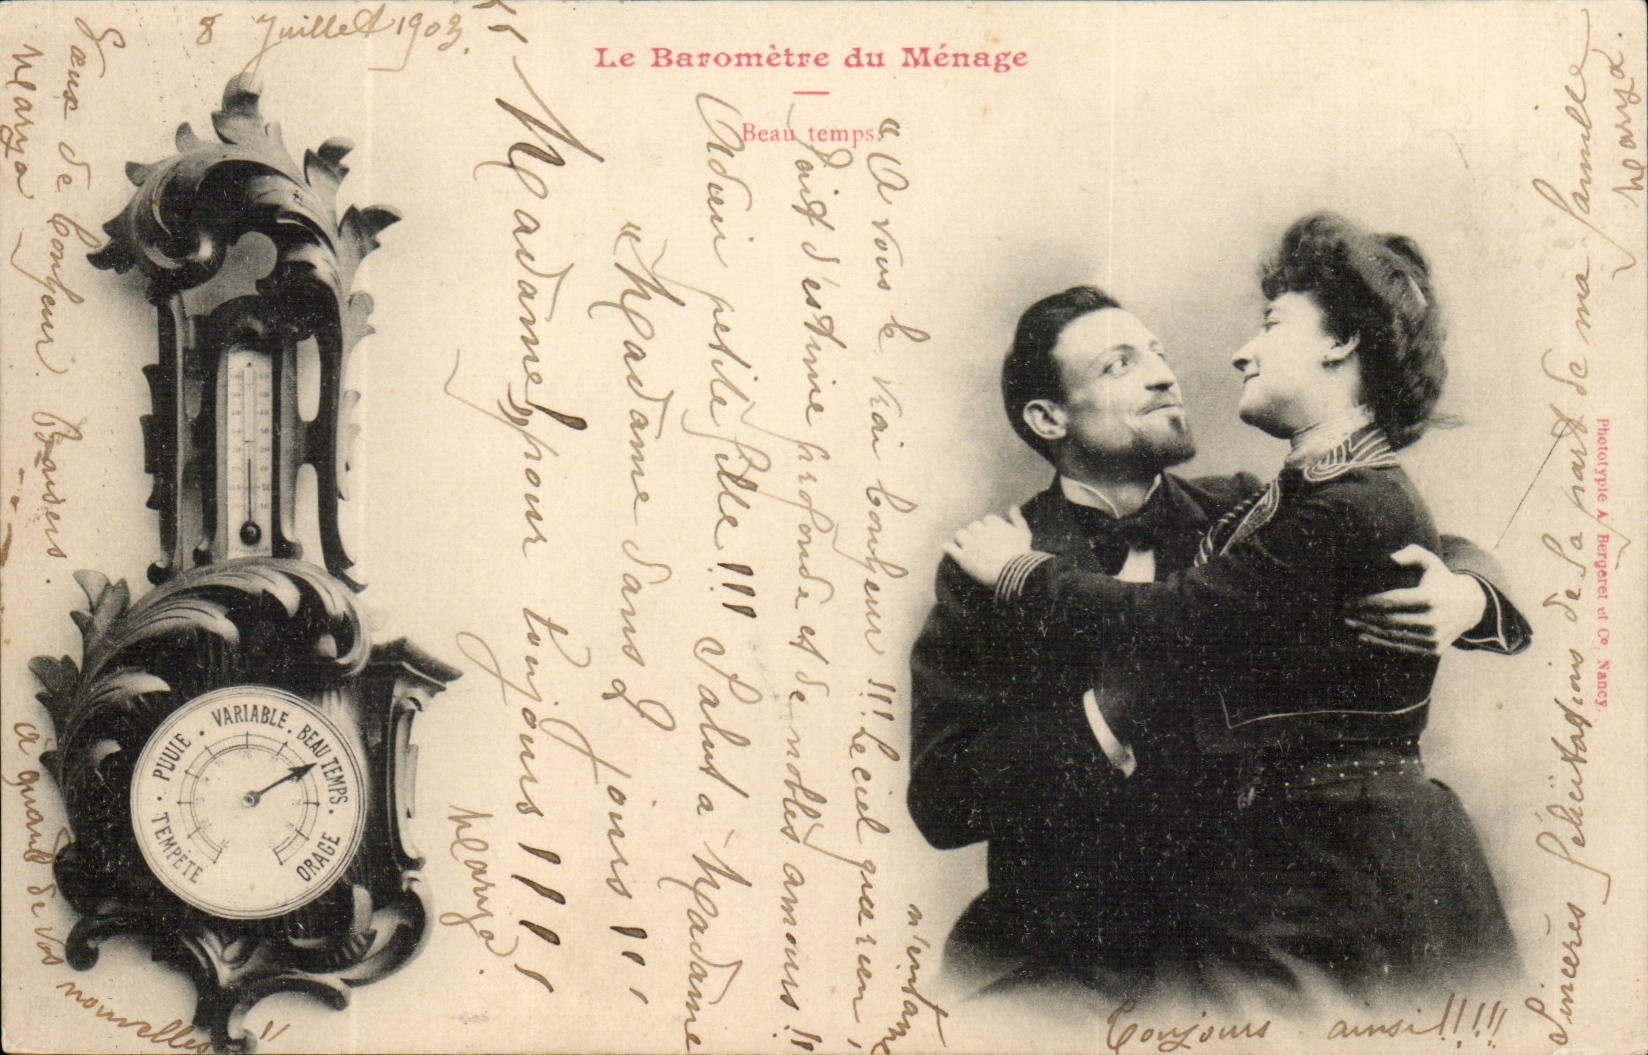 8 Juillet 1903.
Le Baromètre du Ménage
Beau temps.
"A vous le vrai bonheur !!! Le ciel que rien n'entame
Fait d'estime profonde et de nobles amours !!
Adieu petite fille !!! Salut à Madame
"Madame dans 2 jours !! "
"Madame" pour toujours !!!!
Marya.
Vœux de bonheur. Baisers.
Marya
à quand de vos
nouvelles !!
VARIABLE.
BEAU TEMPS.
ORAGE
PLUIE.
TEMPÊTE
Toujours ainsi !!!!!
Sincères félicitations de la part de ma famille
Marya.
Phototypie A. Bergeret et Cº, Nancy.